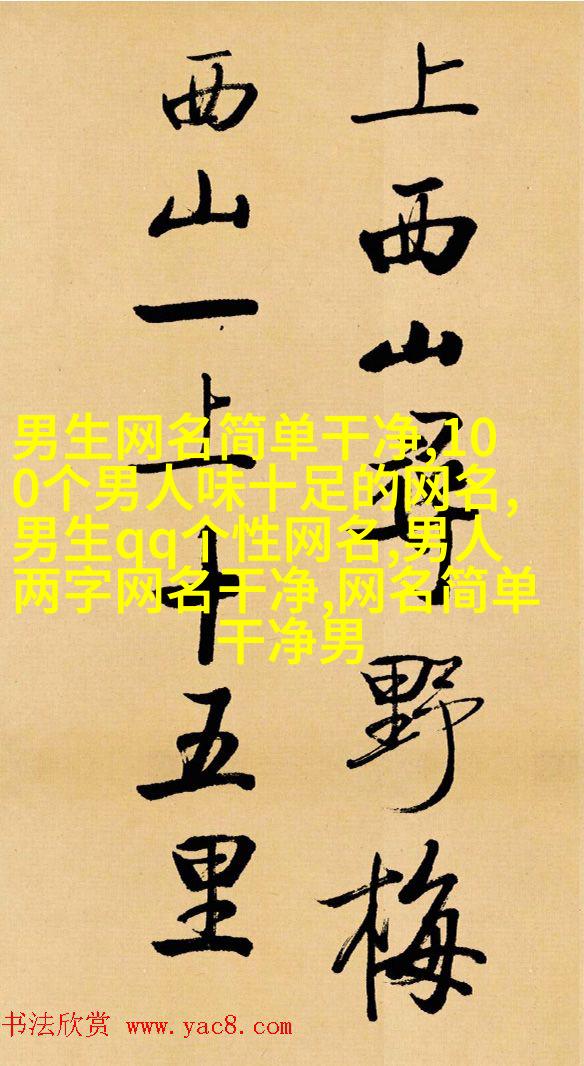 上西山尋野梅
西山一上十五里
男生网名简单干净,10
0个男人味十足的网名,
男生qq个性网名,男人
两字网名干净,网名简单
干净男
书法欣赏 www.yac8.com